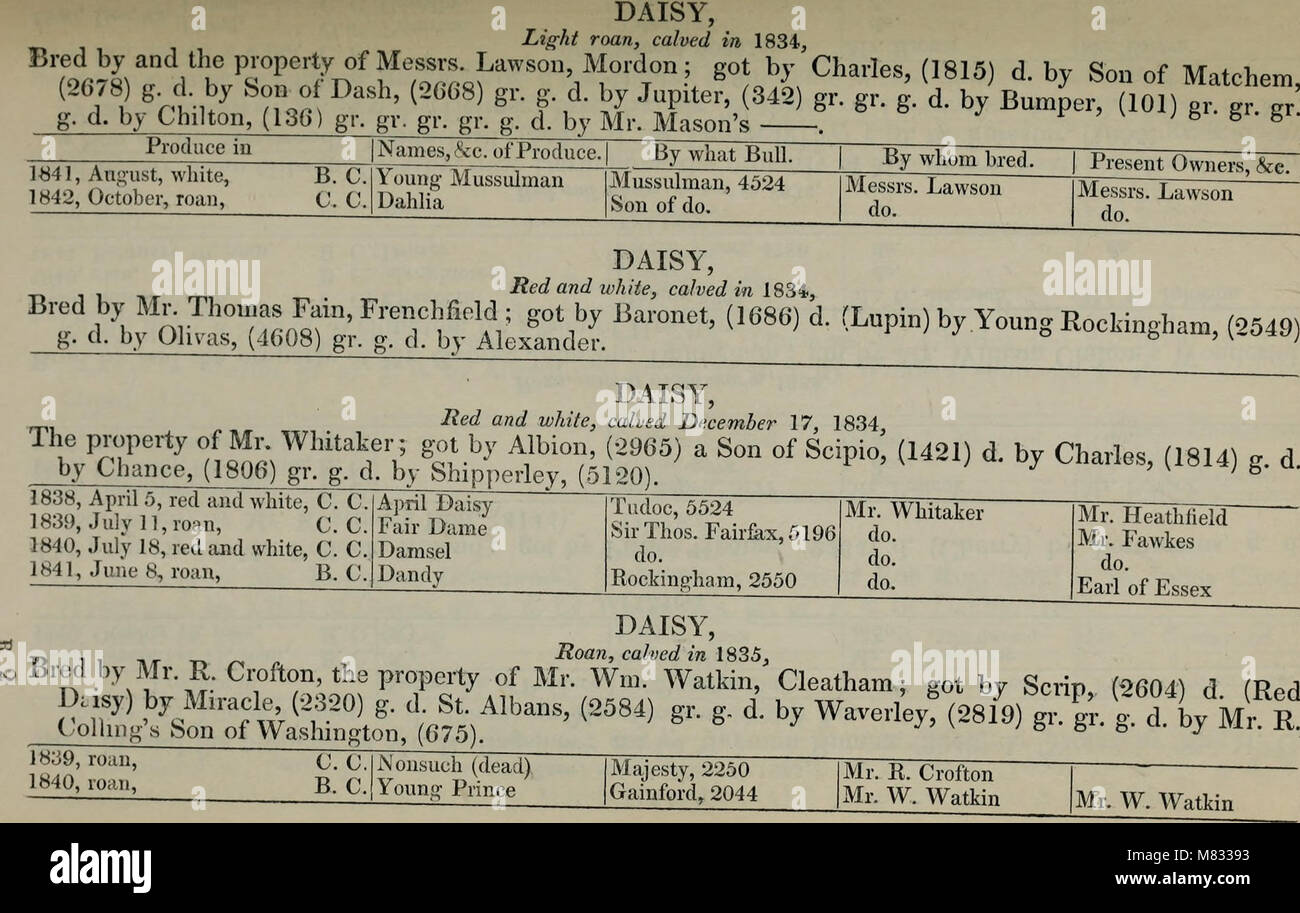 DAISY,
Light roan, calved in 1834,
Bred by and the property of Messrs. Lawson, Mordon; got by Charles, (1815) d. by Son of Matchem,
(2678) g. d. by Son of Dash, (2668) gr. g. d. by Jupiter, (342) gr. gr. g. d. by Bumper, (101) gr. gr. gr.
g. d. by Chilton, (136) gr. gr. gr. gr. g. d. by Mr. Mason's ——.
Produce in | Names, &c. of Produce. | By what Bull. | By whom bred. | Present Owners, &c.
1841, August, white, B. C. Young Mussulman Mussulman, 4524 Messrs. Lawson Messrs. Lawson
1842, October, roan, C. C. Dahlia Son of do. do. do.
DAISY,
Red and white, calved in 1834,
Bred by Mr. Thomas Fain, Frenchfield; got by Baronet, (1686) d. (Lupin) by Young Rockingham, (2549)
g. d. by Olivas, (4608) gr. g. d. by Alexander.
DAISY,
Red and white, calved December 17, 1834,
The property of Mr. Whitaker; got by Albion, (2965) a Son of Scipio, (1421) d. by Charles, (1814) g. d.
by Chance, (1806) gr. g. d. by Shipperley, (5120).
1838, April 5, red and white, C. C. April Daisy Tudoc, 5524 Mr. Whitaker Mr. Heathfield
1839, July 11, roan, C. C. Fair Dame Sir Thos. Fairfax, 5196 do. Mr. Fawkes
1840, July 18, red and white, C. C. Damsel do. do. do.
1841, June 8, roan, B. C. Dandy Rockingham, 2550 do. Earl of Essex
DAISY,
Roan, calved in 1835,
Bred by Mr. R. Crofton, the property of Mr. Wm. Watkin, Cleatham; got by Scrip, (2604) d. (Red
Daisy) by Miracle, (2320) g. d. St. Albans, (2584) gr. g. d. by Waverley, (2819) gr. gr. g. d. by Mr. R.
Colling's Son of Washington, (675).
1839, roan, C. C. Nonsuch (dead) Majesty, 2250 Mr. R. Crofton
1840, roan, B. C. Young Prince Gainford, 2044 Mr. W. Watkin Mr. W. Watkin
alamy
Image ID: M83393
www.alamy.com